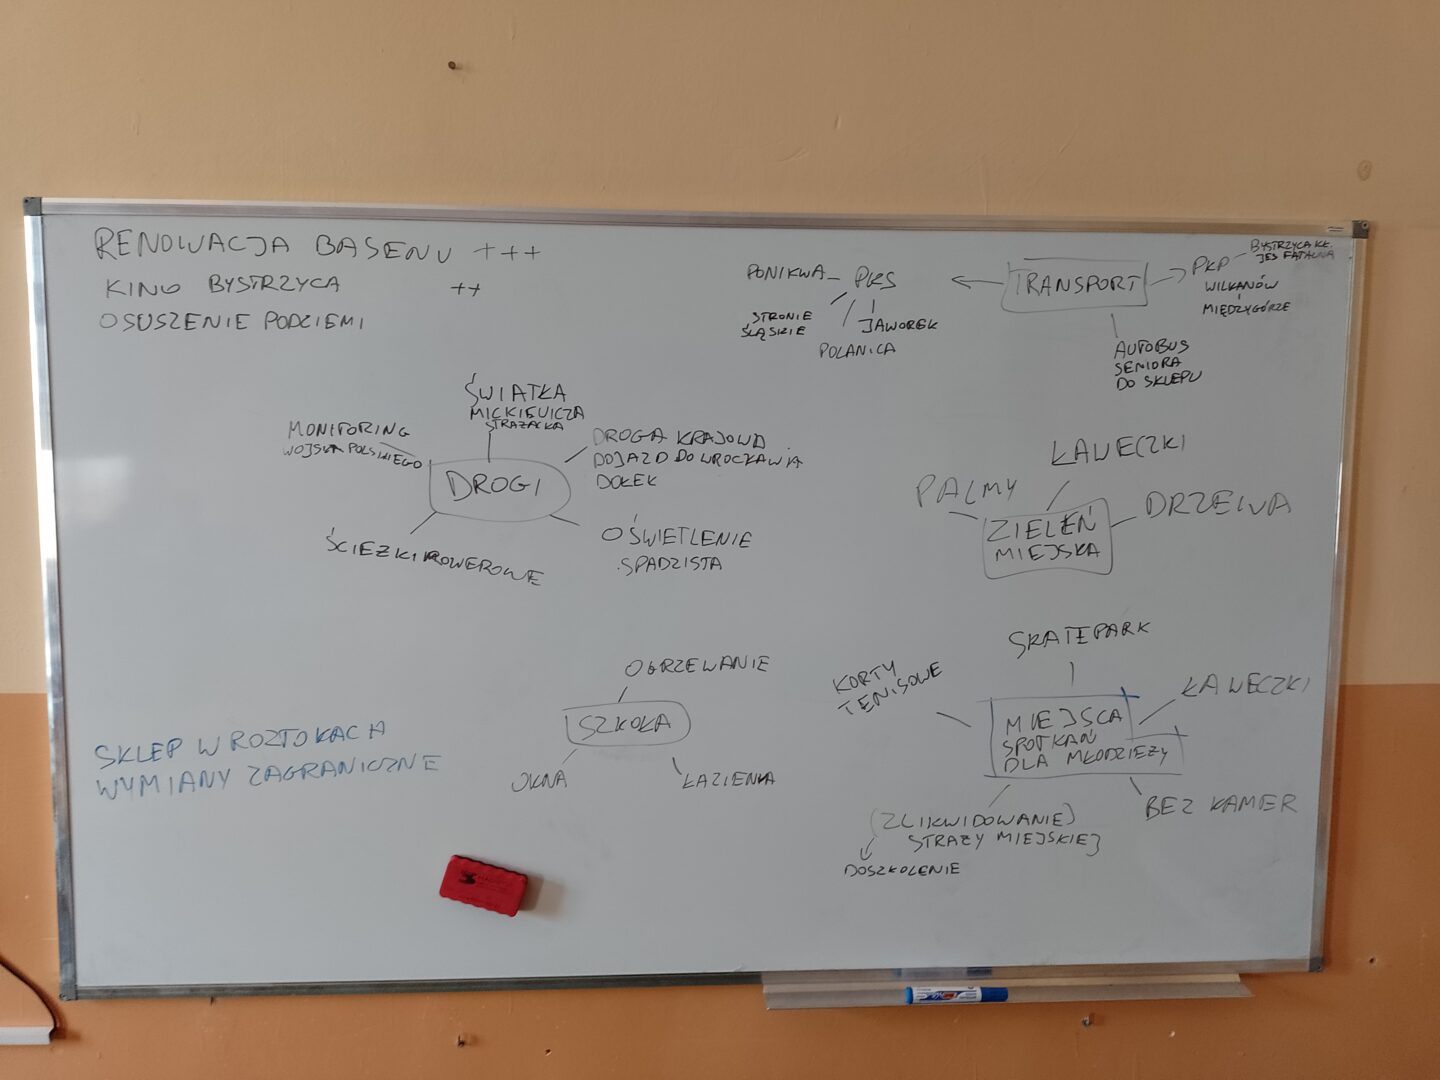 RENOWACJA BASENU +++
KINO BYSTRZYCA ++
OSUSZENIE PODZIEMI
TRANSPORT
PKS
PONIKWA
STRONIE
ŚLĄSKIE
POLANICA
JAWOREK
PKP
BYSTRZYCA KŁ.
JES FATALNA
WILKANÓW
MIĘDZYGÓRZE
AUTOBUS
SENIORA
DO SKLEPU
DROGI
MONITORING
WOJSKA POLSKIEGO
ŚWIATŁA
MICKIEWICZA
STRAŻACKA
DROGA KRAJOWA
DOJAZD DO WROCŁAWIA
DOŁEK
ŚCIEZKI ROWEROWE
OŚWIETLENIE
SPADZISTA
ZIELEŃ
MIEJSKA
PALMY
ŁAWECZKI
DRZEWA
SZKOŁA
OGRZEWANIE
OKNA
ŁAZIENKA
MIEJSCA
SPOTKAŃ
DLA MŁODZIEŻY
KORTY
TENISOWE
SKATEPARK
ŁAWECZKI
BEZ KAMER
(ZLIKWIDOWANIE)
STRAŻY MIEJSKIEJ
DOSZKOLENIE
SKLEP W ROZTOKACH
WYMIANY ZAGRANICZNE